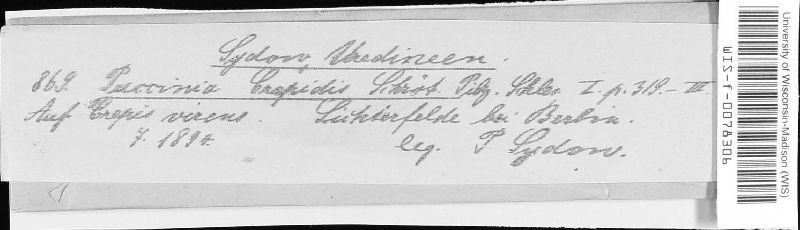 Sydow, Uredineen.
869. Puccinia Crepidis Schröt. Pilz. Schles I. p. 319. - III.
Auf Crepis virens. Lichterfelde bei Berlin.
7. 1890. leg. P Sydow.
University of Wisconsin-Madison (WIS)
WIS-f-0078306